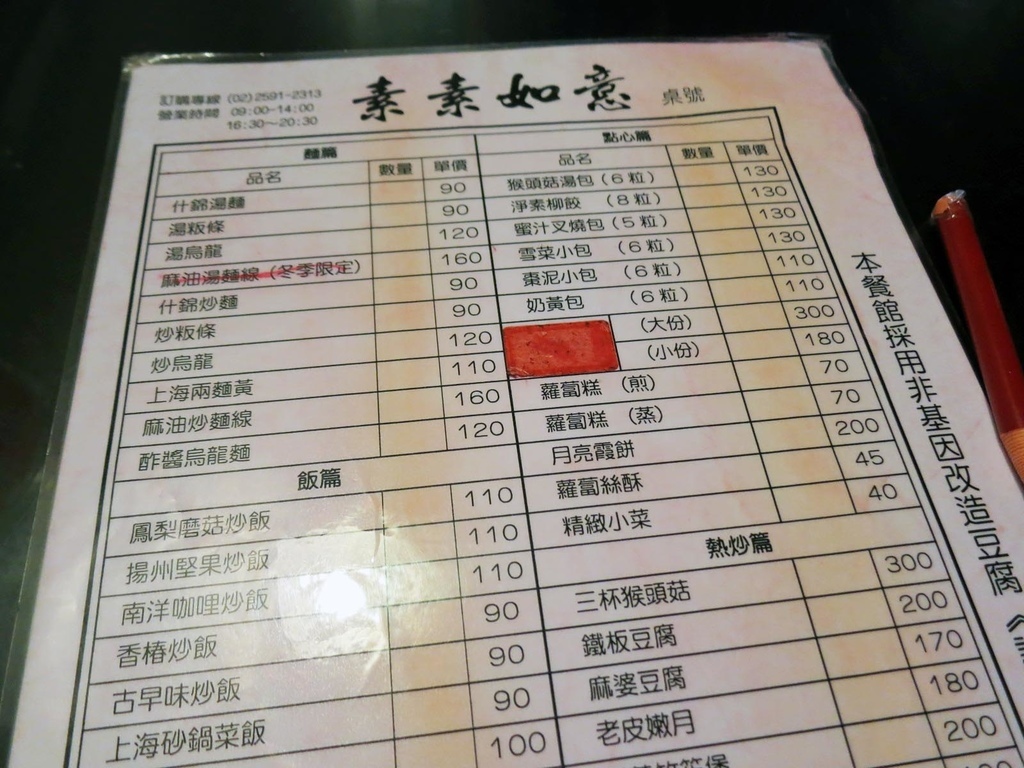 訂購專線 (02)2591-2313
營業時間 09:00-14:00
16:30~20:30
素素如意
桌號
麵篇
品名 數量 單價
什錦湯麵 90
湯粄條 90
湯烏龍 120
麻油湯麵線(冬季限定) 160
什錦炒麵 90
炒粄條 90
炒烏龍 120
上海兩麵黃 110
麻油炒麵線 160
酢醬烏龍麵 120
飯篇
鳳梨磨菇炒飯 110
揚州堅果炒飯 110
南洋咖哩炒飯 110
香椿炒飯 90
古早味炒飯 90
上海砂鍋菜飯 90
100
點心篇
品名 數量 單價
猴頭菇湯包(6粒) 130
淨素柳餃 (8粒) 130
蜜汁叉燒包(5粒) 130
雪菜小包 (6粒) 130
棗泥小包 (6粒) 110
奶黃包 (6粒) 110
(大份) 300
(小份) 180
蘿蔔糕 (煎) 70
蘿蔔糕 (蒸) 70
月亮霞餅 200
蘿蔔絲酥 45
精緻小菜 40
熱炒篇
三杯猴頭菇 300
鐵板豆腐 200
麻婆豆腐 170
老皮嫩月 180
200
本餐館採用非基因改造豆腐